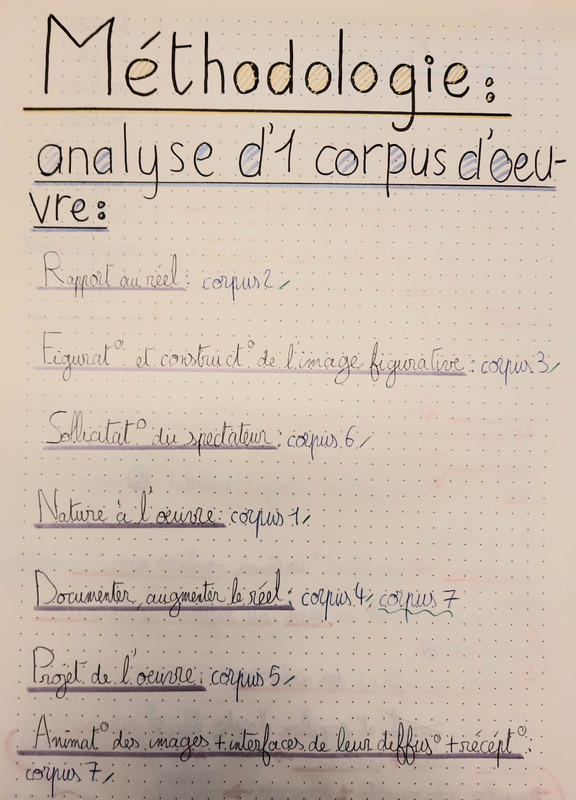 Méthodologie :
analyse d'1 corpus d'oeu-
vre :
Rapport au réel : corpus 2
Figurat° et construct° de l'image figurative : corpus 3
Sollicitat° du spectateur : corpus 6
Nature à l'oeuvre : corpus 1
Documenter, augmenter le réel : corpus 4, corpus 7
Projet de l'oeuvre : corpus 5
Animat° des images + interfaces de leur diffus° + récépt° :
corpus 7